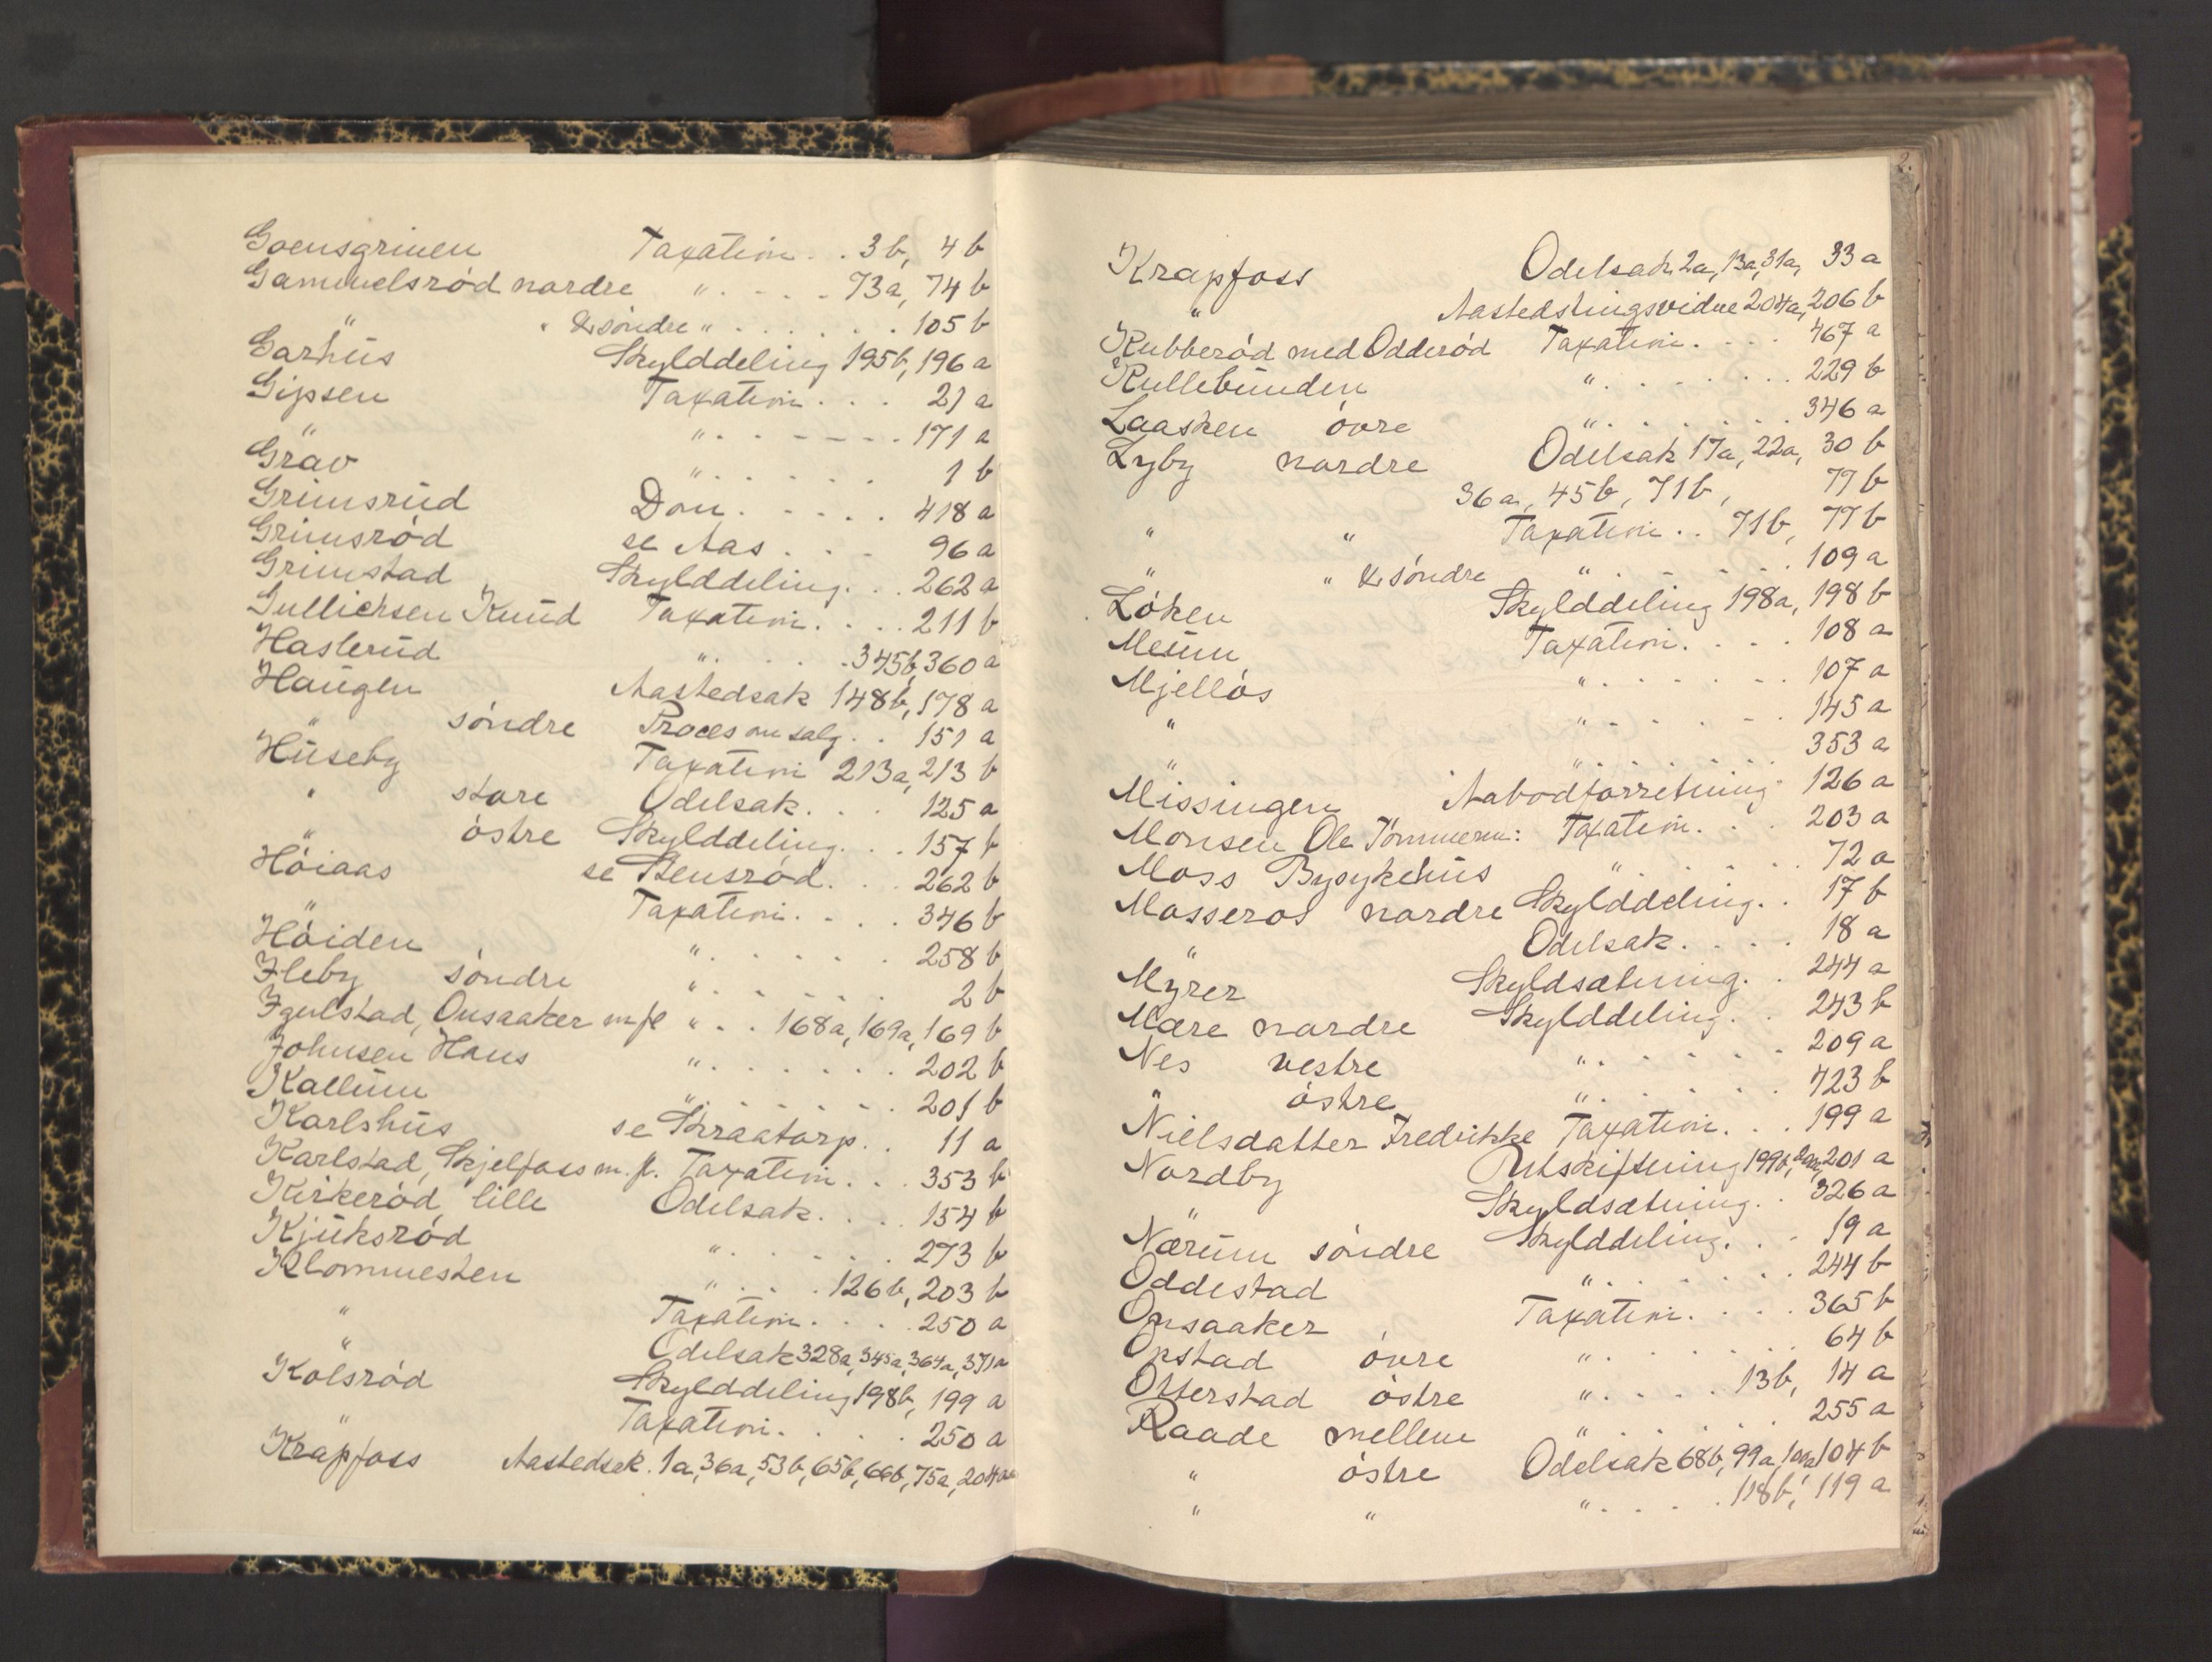 Goensgrinen Taxation . . 3 b, 4 b
Gammelsrød nordre " . . . . 73 a, 74 b
" " & søndre " . . . . . . 105 b
Garhus Skylddeling 195 b, 196 a
Gipsen Taxation . . . 21 a
" " . . . . . . . 171 a
Grav " . . . . . . 1 b
Grimsrud Dom . . . . . 418 a
Grimsrød se Aas . . . 96 a
Grimstad Skylddeling . . . 262 a
Gullichsen Knud Taxation . . . . 211 b
Haslerud " . . . . . 345 b, 360 a
Haugen Aastedsak 148 b, 178 a
" søndre Proces om salg . . 151 a
Huseby Taxation 213 a, 213 b
" store Odelsak . . . 125 a
" østre Skylddeling . . . 157 b
Høiaas se Stensrød . . . 262 b
" Taxation . . . . 346 b
Høiden " . . . . . . 258 b
Ileby søndre " . . . . . . 2 b
Igulstad, Onsaaker m fl " . . . 168 a, 169 a, 169 b
Johnsen Hans " . . . . . . . 202 b
Kallum " . . . . . . . 201 b
Karlshus se Skraatorp . . 11 a
Karlstad, Skjelfoss m. fl. Taxation . . . 353 b
Kirkerød lille Odelsak . . . . 154 b
Kjuksrød " . . . . . . 273 b
Klommesten " . . . . 126 b, 203 b
" Taxation . . . . 250 a
" Odelsak 328 a, 345 a, 364 a, 371 a
Kolsrød Skylddeling 198 b, 199 a
" Taxation . . . . . 250 a
Krapfoss Aastedsak. 1 a, 36 a, 53 b, 65 b, 66 b, 75 a, 204 a
2.
Krapfoss Odelsak 2 a, 13 a, 31 a, 33 a
" Aastedstingsvidne 204 a, 206 b
Kubberød med Odderød Taxation . . . . 467 a
Kullebunden " . . . . . . . . 229 b
Laasken øvre " . . . . . . 346 a
Lyby nordre Odelsak 17 a, 22 a, 30 b
36 a, 45 b, 71 b, 77 b
" " Taxation . . 71 b, 77 b
" " & søndre " . . . . . . 109 a
Løken Skylddeling 198 a, 198 b
Meum Taxation . . . . 108 a
Mjelløs " . . . . . . . 107 a
" " . . . . . . 145 a
" " . . . . . . 353 a
Missingen Aabodforretning 126 a
Monsen Ole Tømmerm: Taxation . . . 203 a
Moss Bysykehus " . . . . . . 72 a
Mosseros nordre Skylddeling . . 17 b
" Odelsak . . . . 18 a
Myrer Skyldsætning . . 244 a
Mære nordre Skylddeling . . 243 b
Nes vestre " . . . . . . 209 a
" østre " . . . . . . 423 b
Nielsdatter Fredrikke Taxation . . . 199 a
Nordby Utskiftning 199 b, 201 a
Skyldsætning . . 326 a
Nærum søndre Skylddeling . . . 19 a
Oddestad " . . . . . . . 244 b
Onsaaker Taxation . . . . 365 b
Opstad øvre " . . . . . . . 64 b
Otterstad østre " . . . . . 13 b, 14 a
Raade mellem " . . . . . . 255 a
" østre Odelsak 68 b, 99 a, 100 a, 104 b
" " " . . . . . 118 b, 119 a